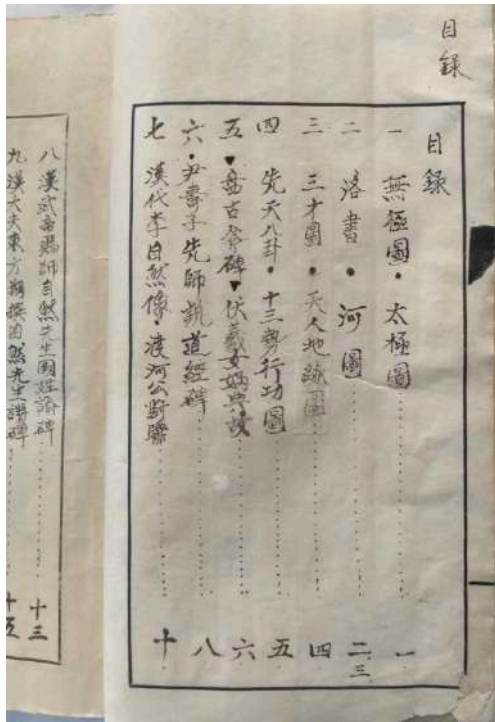 目録
目録
一 無極圖・太極圖 一
二 洛書・河圖 二三
三 三才圖・天人地 圖 四
四 先天八卦・十三勢行功圖 五
五 盤古 碑 伏羲女媧 六
六・尹壽子先師説道經碑 八
七 漢代李自然像・渡河公 十
八 漢武帝賜師自然先生國姓 碑 十三
九 漢大夫東方朔撰自然先生譜碑 十五